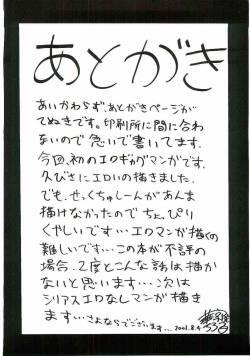 あとがき
あいかわらず、あとがきページが
てぬきです。印刷所に間に合わ
ないので急いで書いてます.
今回、初のエロギャグマンガです.
久びさにエロいの描きました.
でも、せっくちゅしーんがあんま
描けなかったのでちょっぴり
くやしいです…エロマンガ描くの
難しいです…この本が不評の
場合、2度とこんな話は描か
ないと思います…次は
シリアスエロなしマンガが描き
ます…さよならでございます…
2001.8.4